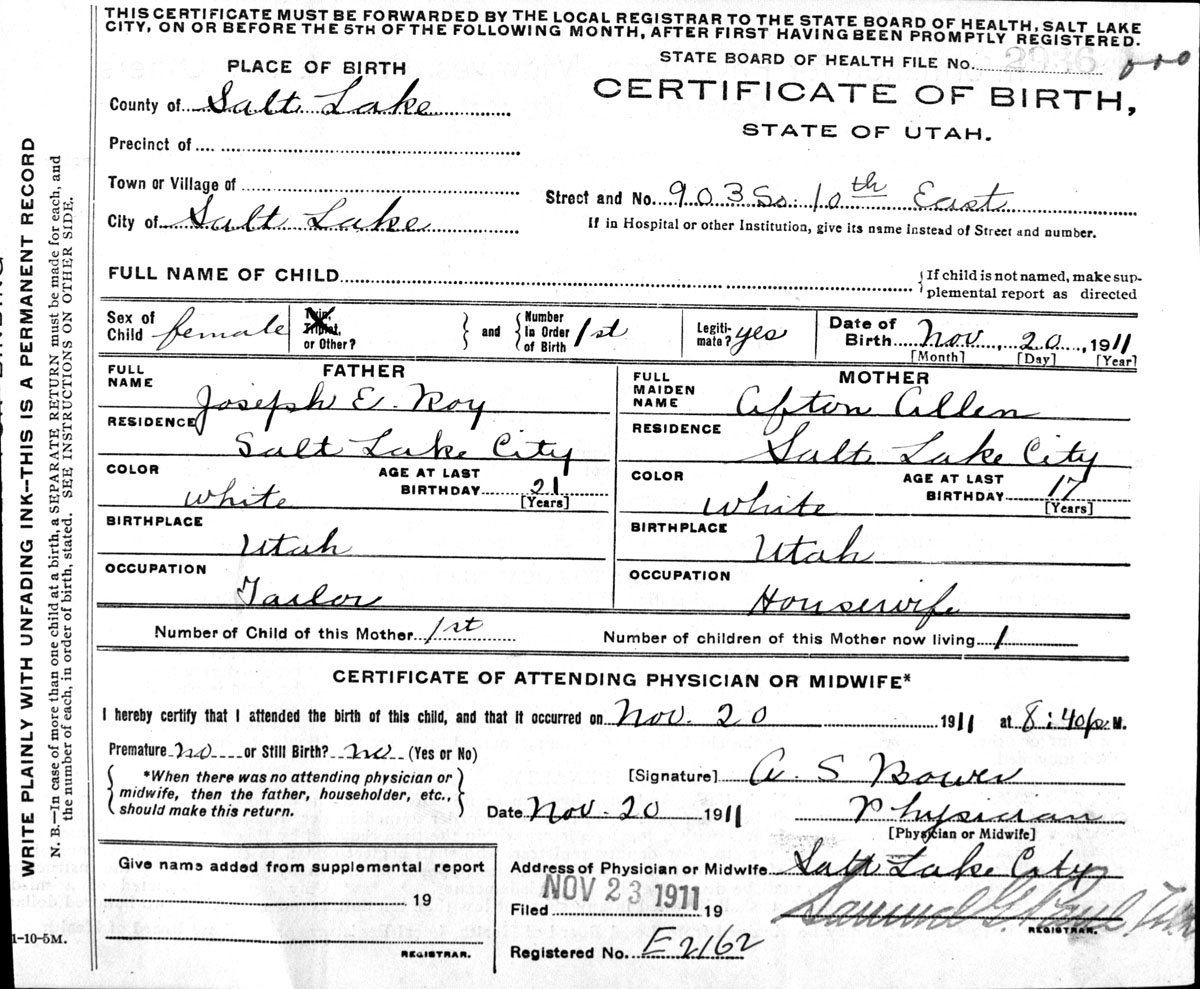 THIS CERTIFICATE MUST BE FORWARDED BY THE LOCAL REGISTRAR TO THE STATE BOARD OF HEALTH, SALT LAKE
CITY, ON OR BEFORE THE 5TH OF THE FOLLOWING MONTH, AFTER FIRST HAVING BEEN PROMPTLY REGISTERED.
STATE BOARD OF HEALTH FILE No. 2936
PLACE OF BIRTH
CERTIFICATE OF BIRTH,
STATE OF UTAH.
County of Salt Lake
Precinct of
Town or Village of
Street and No. 903 So. 10th East
City of Salt Lake
If in Hospital or other Institution, give its name instead of Street and number.
FULL NAME OF CHILD
If child is not named, make sup-
plemental report as directed
Sex of Child female
Twin, Triplet, or Other?
and
Number in Order of Birth 1st
Legiti-mate? yes
Date of Birth Nov. 20, 1911
[Month] [Day] [Year]
FATHER
FULL NAME Joseph E. Roy
RESIDENCE Salt Lake City
COLOR white
AGE AT LAST BIRTHDAY 21
[Years]
BIRTHPLACE Utah
OCCUPATION Tailor
MOTHER
FULL MAIDEN NAME Afton Allen
RESIDENCE Salt Lake City
COLOR White
AGE AT LAST BIRTHDAY 17
[Years]
BIRTHPLACE Utah
OCCUPATION Housewife
Number of Child of this Mother 1st
Number of children of this Mother now living 1
CERTIFICATE OF ATTENDING PHYSICIAN OR MIDWIFE*
I hereby certify that I attended the birth of this child, and that it occurred on Nov. 20 1911 at 8:40 p. M.
Premature no or Still Birth? no (Yes or No)
*When there was no attending physician or
midwife, then the father, householder, etc.,
should make this return.
[Signature] A. S Bower
Date Nov. 20 1911
Physician
[Physician or Midwife]
Give name added from supplemental report
19
REGISTRAR.
Address of Physician or Midwife Salt Lake City
Filed NOV 23 1911 19
Samuel G.
REGISTRAR.
Registered No. E2162
1-10-5M.
WRITE PLAINLY WITH UNFADING INK—THIS IS A PERMANENT RECORD
N. B.—In case of more than one child at a birth, a SEPARATE RETURN must be made for each, and
the number of each, in order of birth, stated. SEE INSTRUCTIONS ON OTHER SIDE.